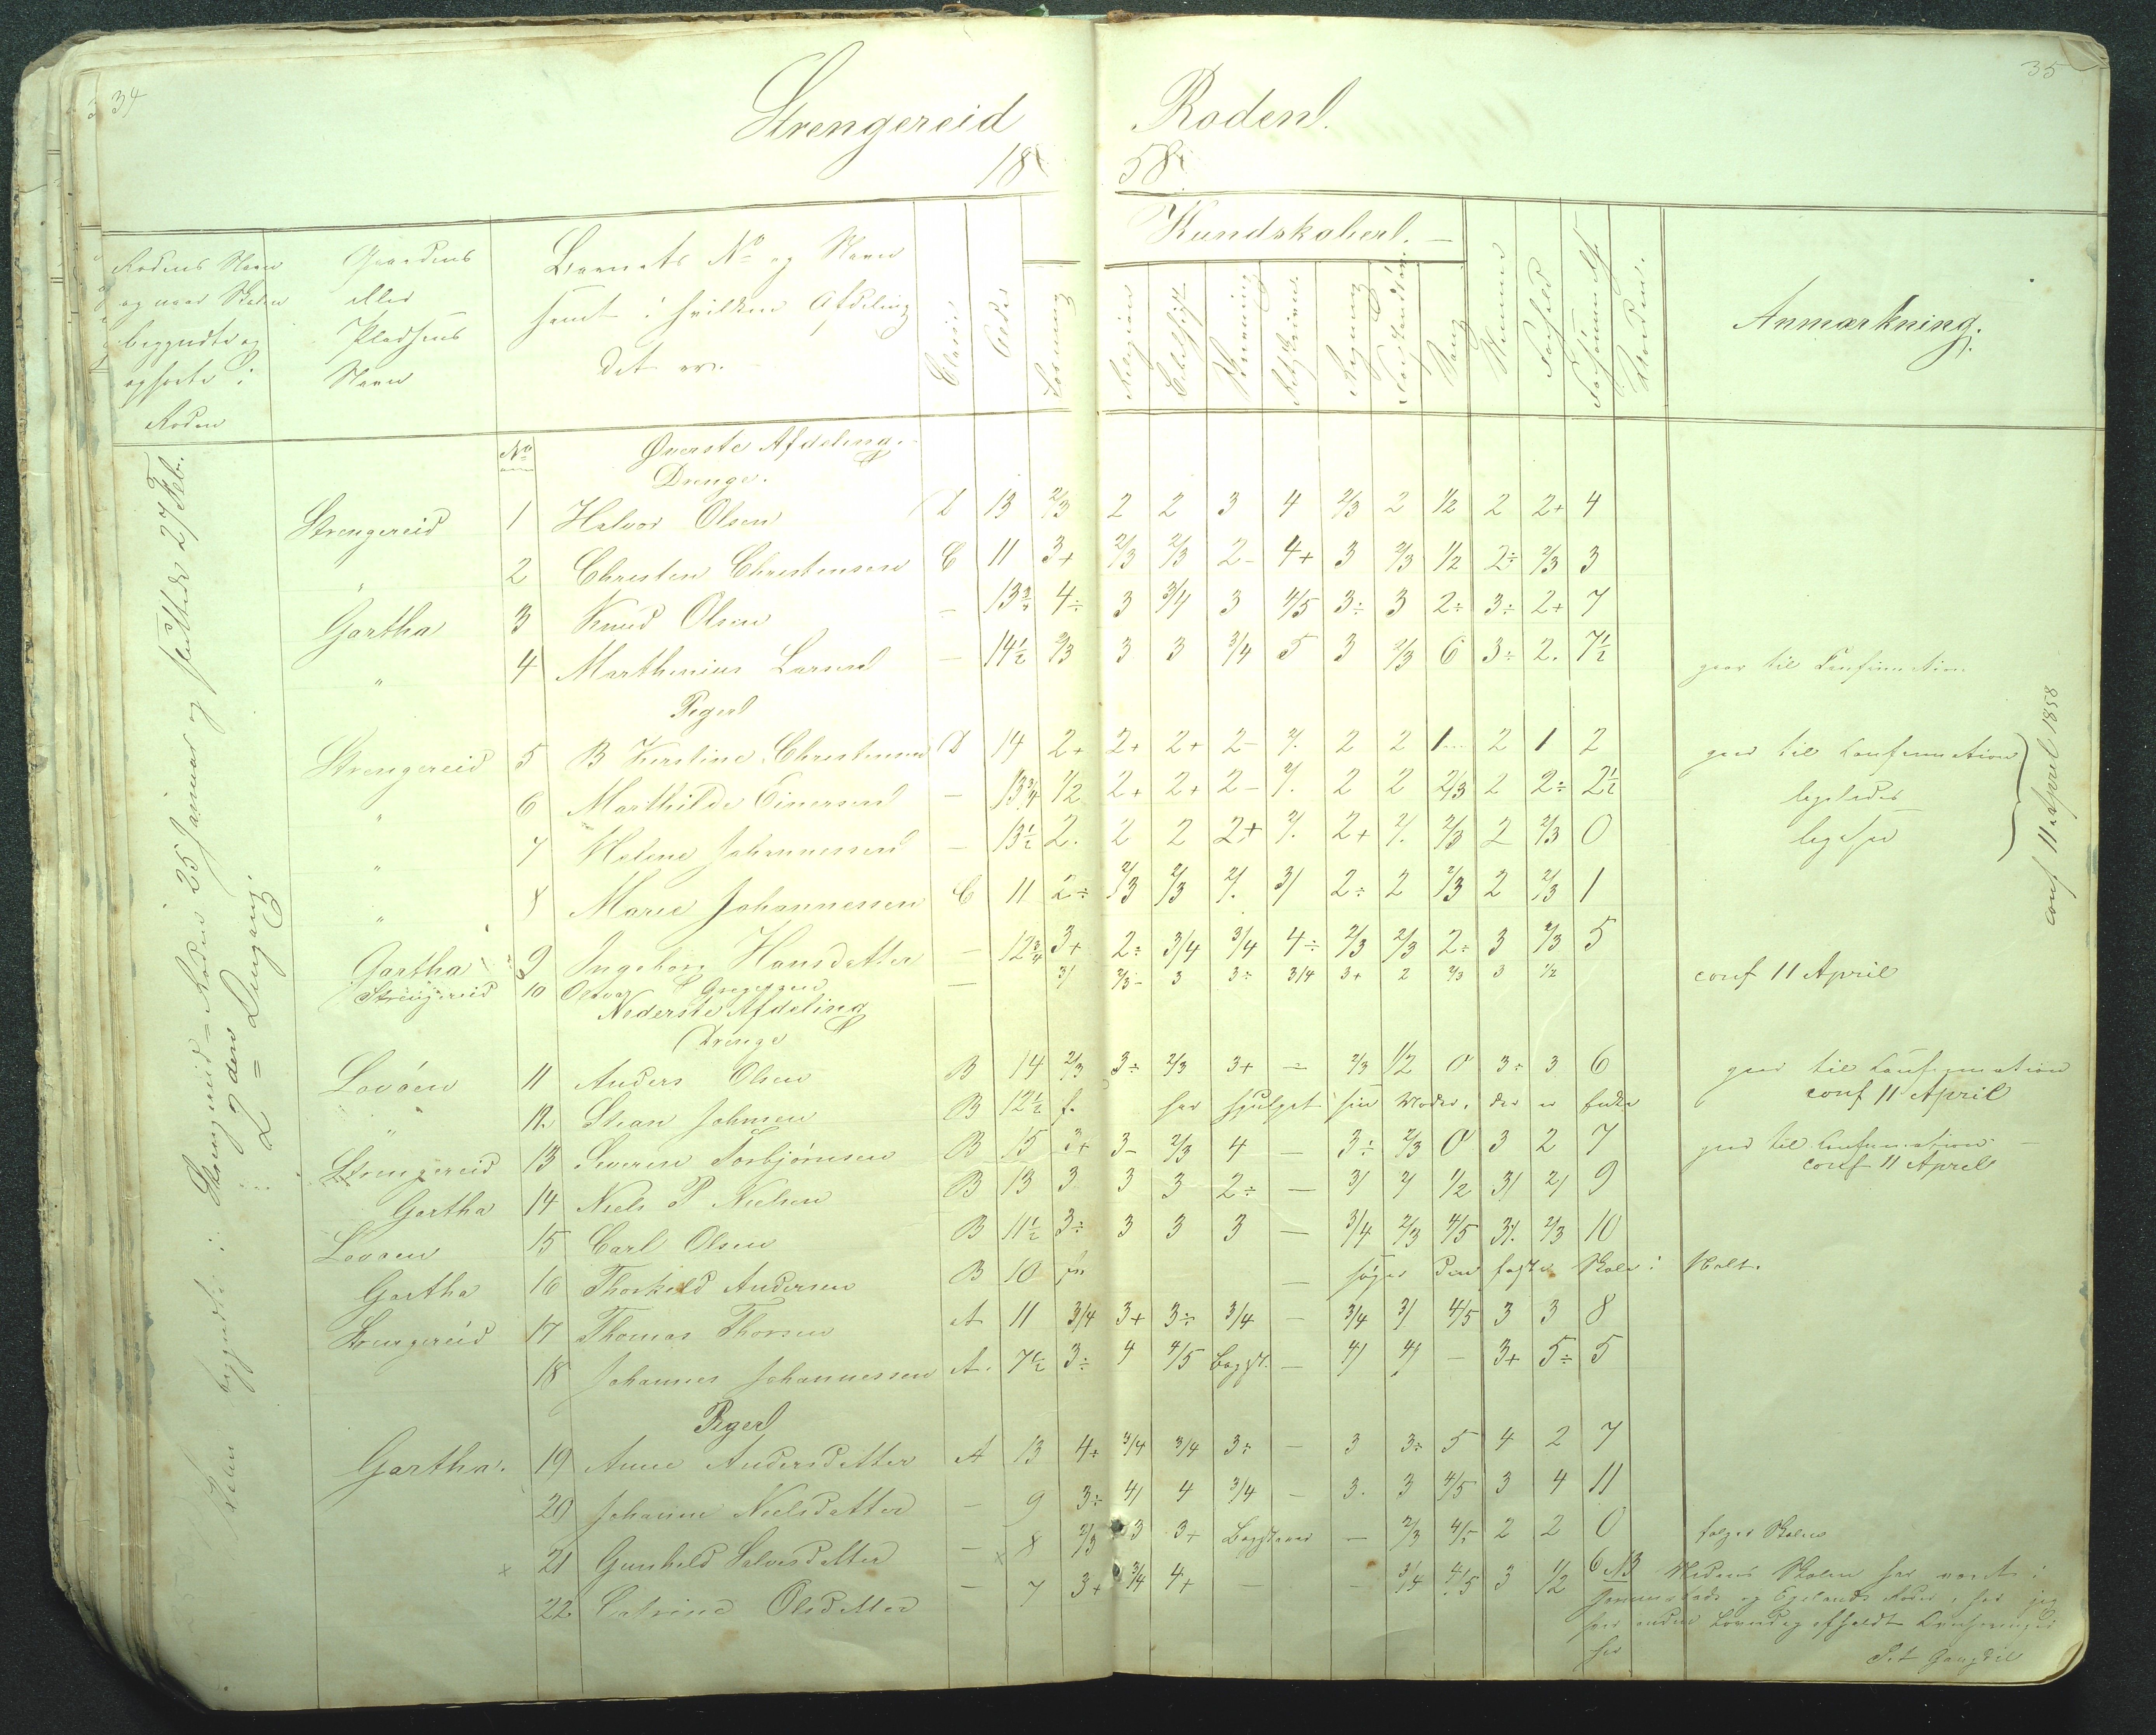 34
35
Strengereid Roden.
1858.
Rodens Navn og naar Skolen begyndte og ophørte i Roden
Gaardens eller Pladsens Navn
Barnets No og Navn samt i hvilken Afdeling det er.
Classe
Alder
Læsning
Kundskaber.
Religion
Bibelhist.
Skrivning
Retskrivn.
Regning
Forstandsöv.
Sang
Nemme
Forhold
Forsömmelse
Anmærkning.
Skolen begyndte i Strengereid-Roden 25 Januar og sluttede 27 Feb.
2den Omgang.
No Øverste Afdeling.
Drenge.
Strengereid 1 Halvor Olsen D 13 2/3 2 2 3 4 2/3 2 1/2 2 2+ 4
" 2 Christen Christensen C 11 3+ 2/3 2/3 2- 4+ 3 2/3 1/2 2÷ 2/3 3
Gartha 3 Knud Olsen - 4÷ 3 3/4 3 4/5 3÷ 3 2÷ 3÷ 2+ 7
" 4 Marthinius Larsen - 14½ 2/3 3 3 3/4 5 3 2/3 6 3÷ 2. 7½ gaar til Confirmation
Piger
Strengereid 5 B Kirstine Christensen D 14 2+ 2+ 2+ 2- 2/. 2 2 1 2 1 2 gaar til Confirmation
" 6 Marthilde Einersen - 13¾ 1/2 2+ 2+ 2- 2/. 2 2 2/3 2 2÷ 2½ ligeledes
" 7 Helene Johannessen - 13½ 2. 2 2 2+ 2/. 2+ 2/. 2/3 2 2/3 0 ligesaa
conf 11 April 1858
" 8 Marie Johannessen C 11 2÷ 2/3 2/3 2/. 3/ 2÷ 2 2/3 2 2/3 1
Gartha 9 Ingeborg Hansdatter - 12¾ 3+ 2÷ 3/4 3/4 4÷ 2/3 2/3 2÷ 3 2/3 5
Strengereid 10 Gregersen - 3/ 2/3- 3 3÷ 3/4 3+ 2 2/3 3 1/2 conf 11 April
Nederste Afdeling
Drenge
Lovöen 11 Anders Olsen B 14 2/3 3÷ 2/3 3+ - 2/3 1/2 0 3÷ 3 6 gaar til Confirmation
conf 11 April
" 12. Stian Johnsen B 12½ f. har hjulpet sin Moder, der er Enke
Strengereid 13 Severin Torbjörnsen B 15 3+ 3- 2/3 4 - 3÷ 2/3 0 3 2 7 gaar til Confirmation -
conf 11 April
Gartha 14 Niels P Nielsen B 13 3 3 3 2÷ - 3/ 2/ 1/2 3/ 2/ 9
Lovöen 15 Carl Olsen B 11½ 3÷ 3 3 3 - 3/4 2/3 4/5 3/. 2/3 10
Gartha 16 Thorkild Andersen B 10 - søger den faste Skole i Holt.
Strengereid 17 Thomas Thorsen A 11 3/4 3+ 3÷ 3/4 - 3/4 3/ 4/5 3 3 8
18 Johannes Johannessen A. 7½ 3÷ 4 4/5 Bogst. - 4/ 4/ - 3+ 5÷ 5
Piger
Gartha. 19 Anne Andersdatter A 13 4÷ 3/4 3/4 3÷ - 3 3÷ 5 4 2 7
20 Johanne Nielsdatter - 9 3÷ 4/ 4 3/4 - 3. 3 4/5 3 4 11
x 21 Gunhild Salvesdatter - x 8 2/3 3 3+ Bogstaver - 2/3 4/5 2 2 0 følger Skolen
22. Catrine Olsdatter - 7 3+ 3/4 4+ - - 3/4 4/5 3 1/2 6
NB Medens Skolen har været i og Egelands Roder, har jeg hver anden Løverdag afholdt her